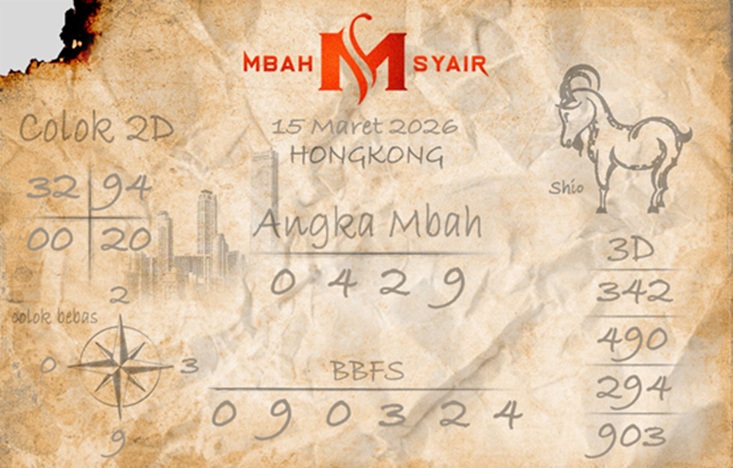 MBAH M SYAIR
15 Maret 2026
HONGKONG
Colok 2D
32 94
00 20
Angka Mbah
0 4 2 9
Shio
3D
342
490
294
903
colok bebas
2
0 3
9
BBFS
0 9 0 3 2 4